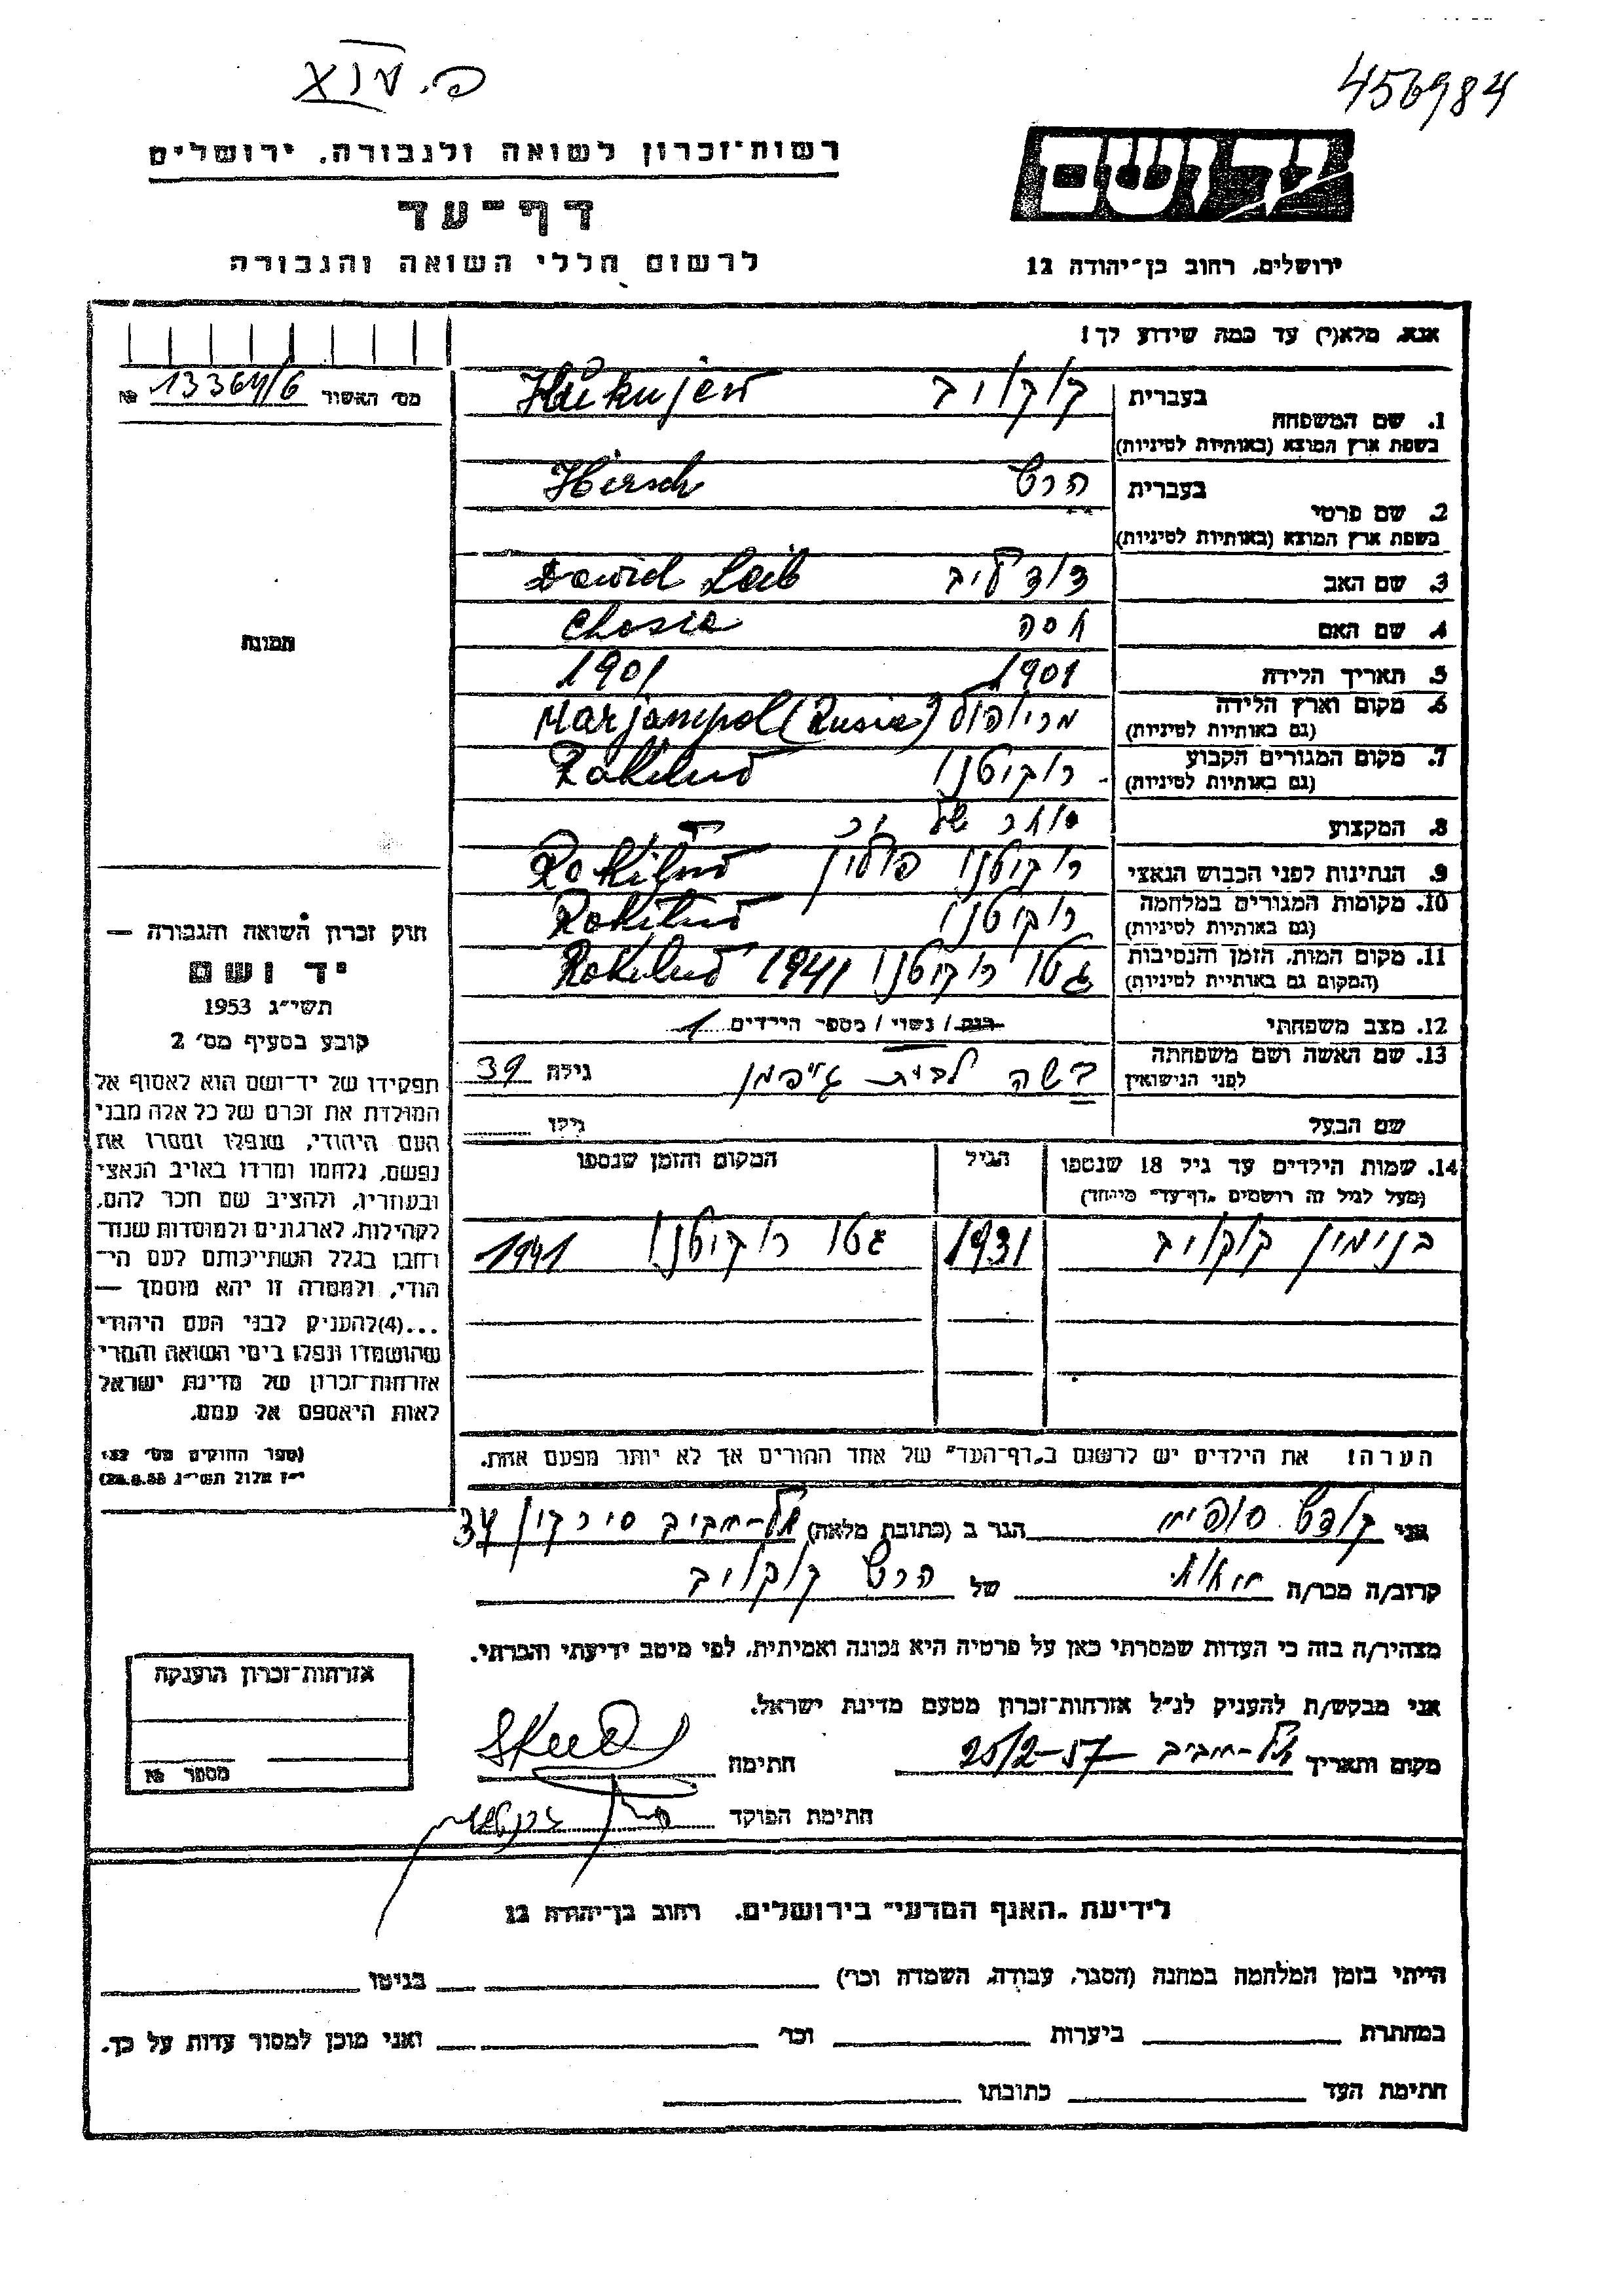 456984
רשות־זכרון לשואה ולגבורה, ירושלים
יד ושם
דף־עד
לרשום חללי השואה והגבורה
ירושלים, רחוב בן־יהודה 12
אנא, מלא(י) עד כמה שידוע לך!
מס׳ האשור 13364/6 №
1. שם המשפחה
בעברית קוקויב
בשפת ארץ המוצא (באותיות לטיניות)
2. שם פרטי
בעברית הרש Hersch
בשפת ארץ המוצא (באותיות לטיניות)
3. שם האב דוד לייב Dawid Leib
4. שם האם חסה Chasia
5. תאריך הלידה 1901 1901
6. מקום וארץ הלידה Marjampol (Rusia)
(גם באותיות לטיניות)
7. מקום המגורים הקבוע רוקיטנו Rokitno
(גם באותיות לטיניות)
8. המקצוע סוחר של
9. הנתינות לפני הכבוש הנאצי רוקיטנו פולין Rokitno
10. מקומות המגורים במלחמה רוקיטנו Rokitno
(גם באותיות לטיניות)
11. מקום המות, הזמן והנסיבות גטו רוקיטנו 1941 Rokitno
(המקום גם באותיות לטיניות)
12. מצב משפחתי רוק / נשוי / מספר הילדים 1
13. שם האשה ושם משפחתה
לפני הנישואין בשה לבית גילה 39
שם הבעל גילו
14. שמות הילדים עד גיל 18 שנספו הגיל המקום והזמן שנספו
(מעל לגיל זה רושמים „דף־עד״ מיוחד)
בנימין קוקויב 1931 גטו רוקיטנו 1941
תמונה
חוק זכרון השואה והגבורה —
יד ושם
תשי״ג 1953
קובע בסעיף מס׳ 2
תפקידו של יד־ושם הוא לאסוף אל
המולדת את זכרם של כל אלה מבני
העם היהודי, שנפלו ומסרו את
נפשם, נלחמו ומרדו באויב הנאצי
ובעוזריו, ולהציב שם וזכר להם,
לקהילות, לארגונים ולמוסדות שנח־
רחבו בגלל השתייכותם לעם הי־
הודי, ולמטרה זו יהא מוסמך —
...(4) להעניק לבני העם היהודי
שהושמדו ונפלו בימי השואה והמרי
אזרחות־זכרון של מדינת ישראל
לאות היאספם אל עמם.
(ספר החוקים מס׳ 132
י״ז אלול תשי״ג 28.8.53)
הערה! את הילדים יש לרשום ב„דף־העד״ של אחד ההורים אך לא יותר מפעם אחת.
אני הגר ב (כתובת מלאה) תל־אביב סירקין 34
קרוב/ה מכר/ה של הרש קוקויב
מצהיר/ה בזה כי העדות שמסרתי כאן על פרטיה היא נכונה ואמיתית, לפי מיטב ידיעתי והכרתי.
אני מבקש/ת להעניק לנ״ל אזרחות־זכרון מטעם מדינת ישראל.
מקום ותאריך תל־אביב 25/2-57 חתימה
חתימת הפוקד
אזרחות־זכרון הוענקה
מספר №
לידיעת „האגף המדעי״ בירושלים. רחוב בן־יהודה 12
הייתי בזמן המלחמה במחנה (הסגר, עבודה, השמדה וכו׳) בגיטו
במחתרת ביערות וכו׳ ואני מוכן למסור עדות על כך.
חתימת העד כתובתו